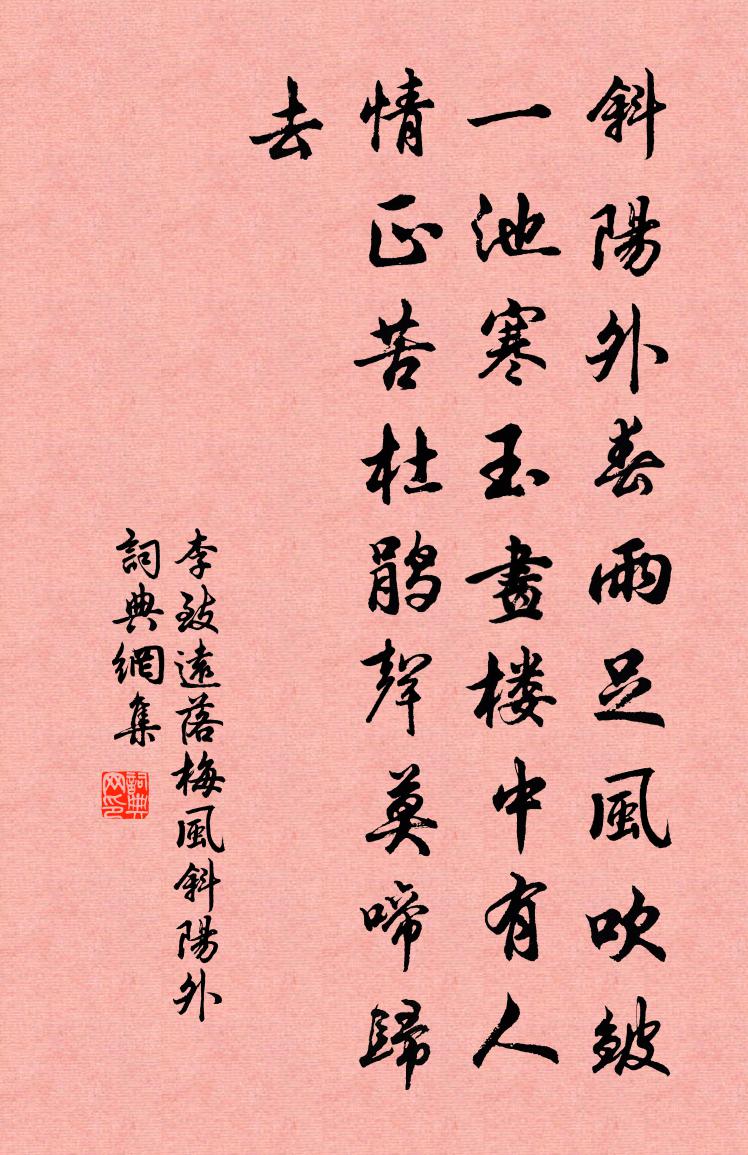 斜陽外春雨足風吹皺
一池寒玉畫楼中有人
情正苦杜鹃聲莫啼歸
去
李致遠落梅風斜陽外
詞典網集
詞典网印